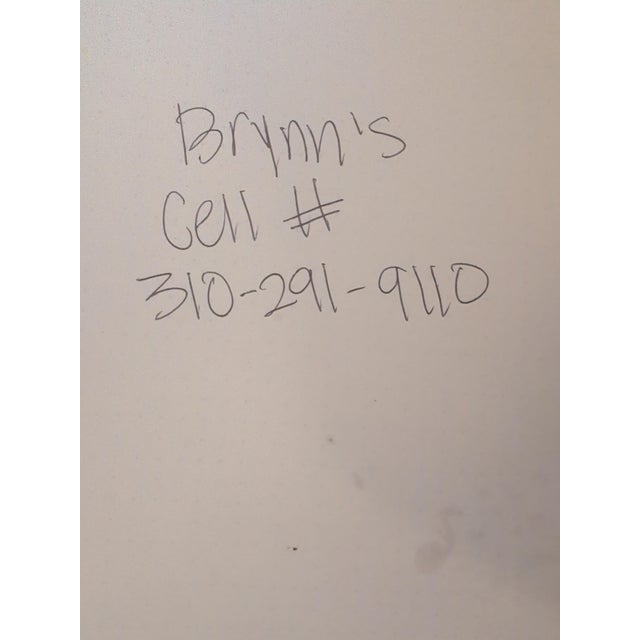 Brynn's
Cell #
310-291-9110